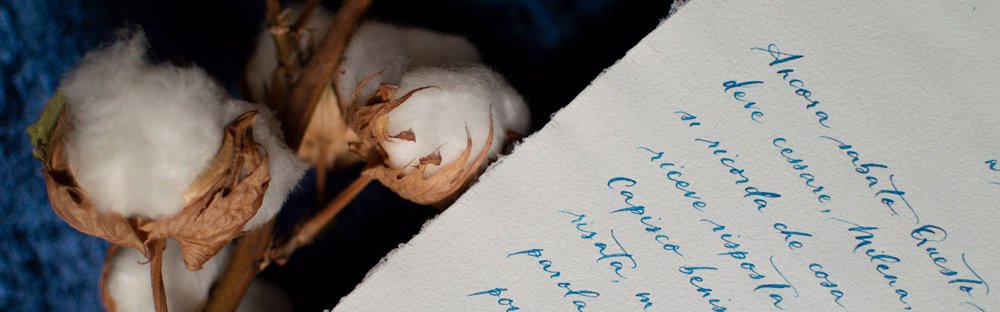 Ancora sabato. Questo
deve cessare, Milena,
si ricorda che cosa
riceve risposta
Capisco benis
risata, m
parola
po